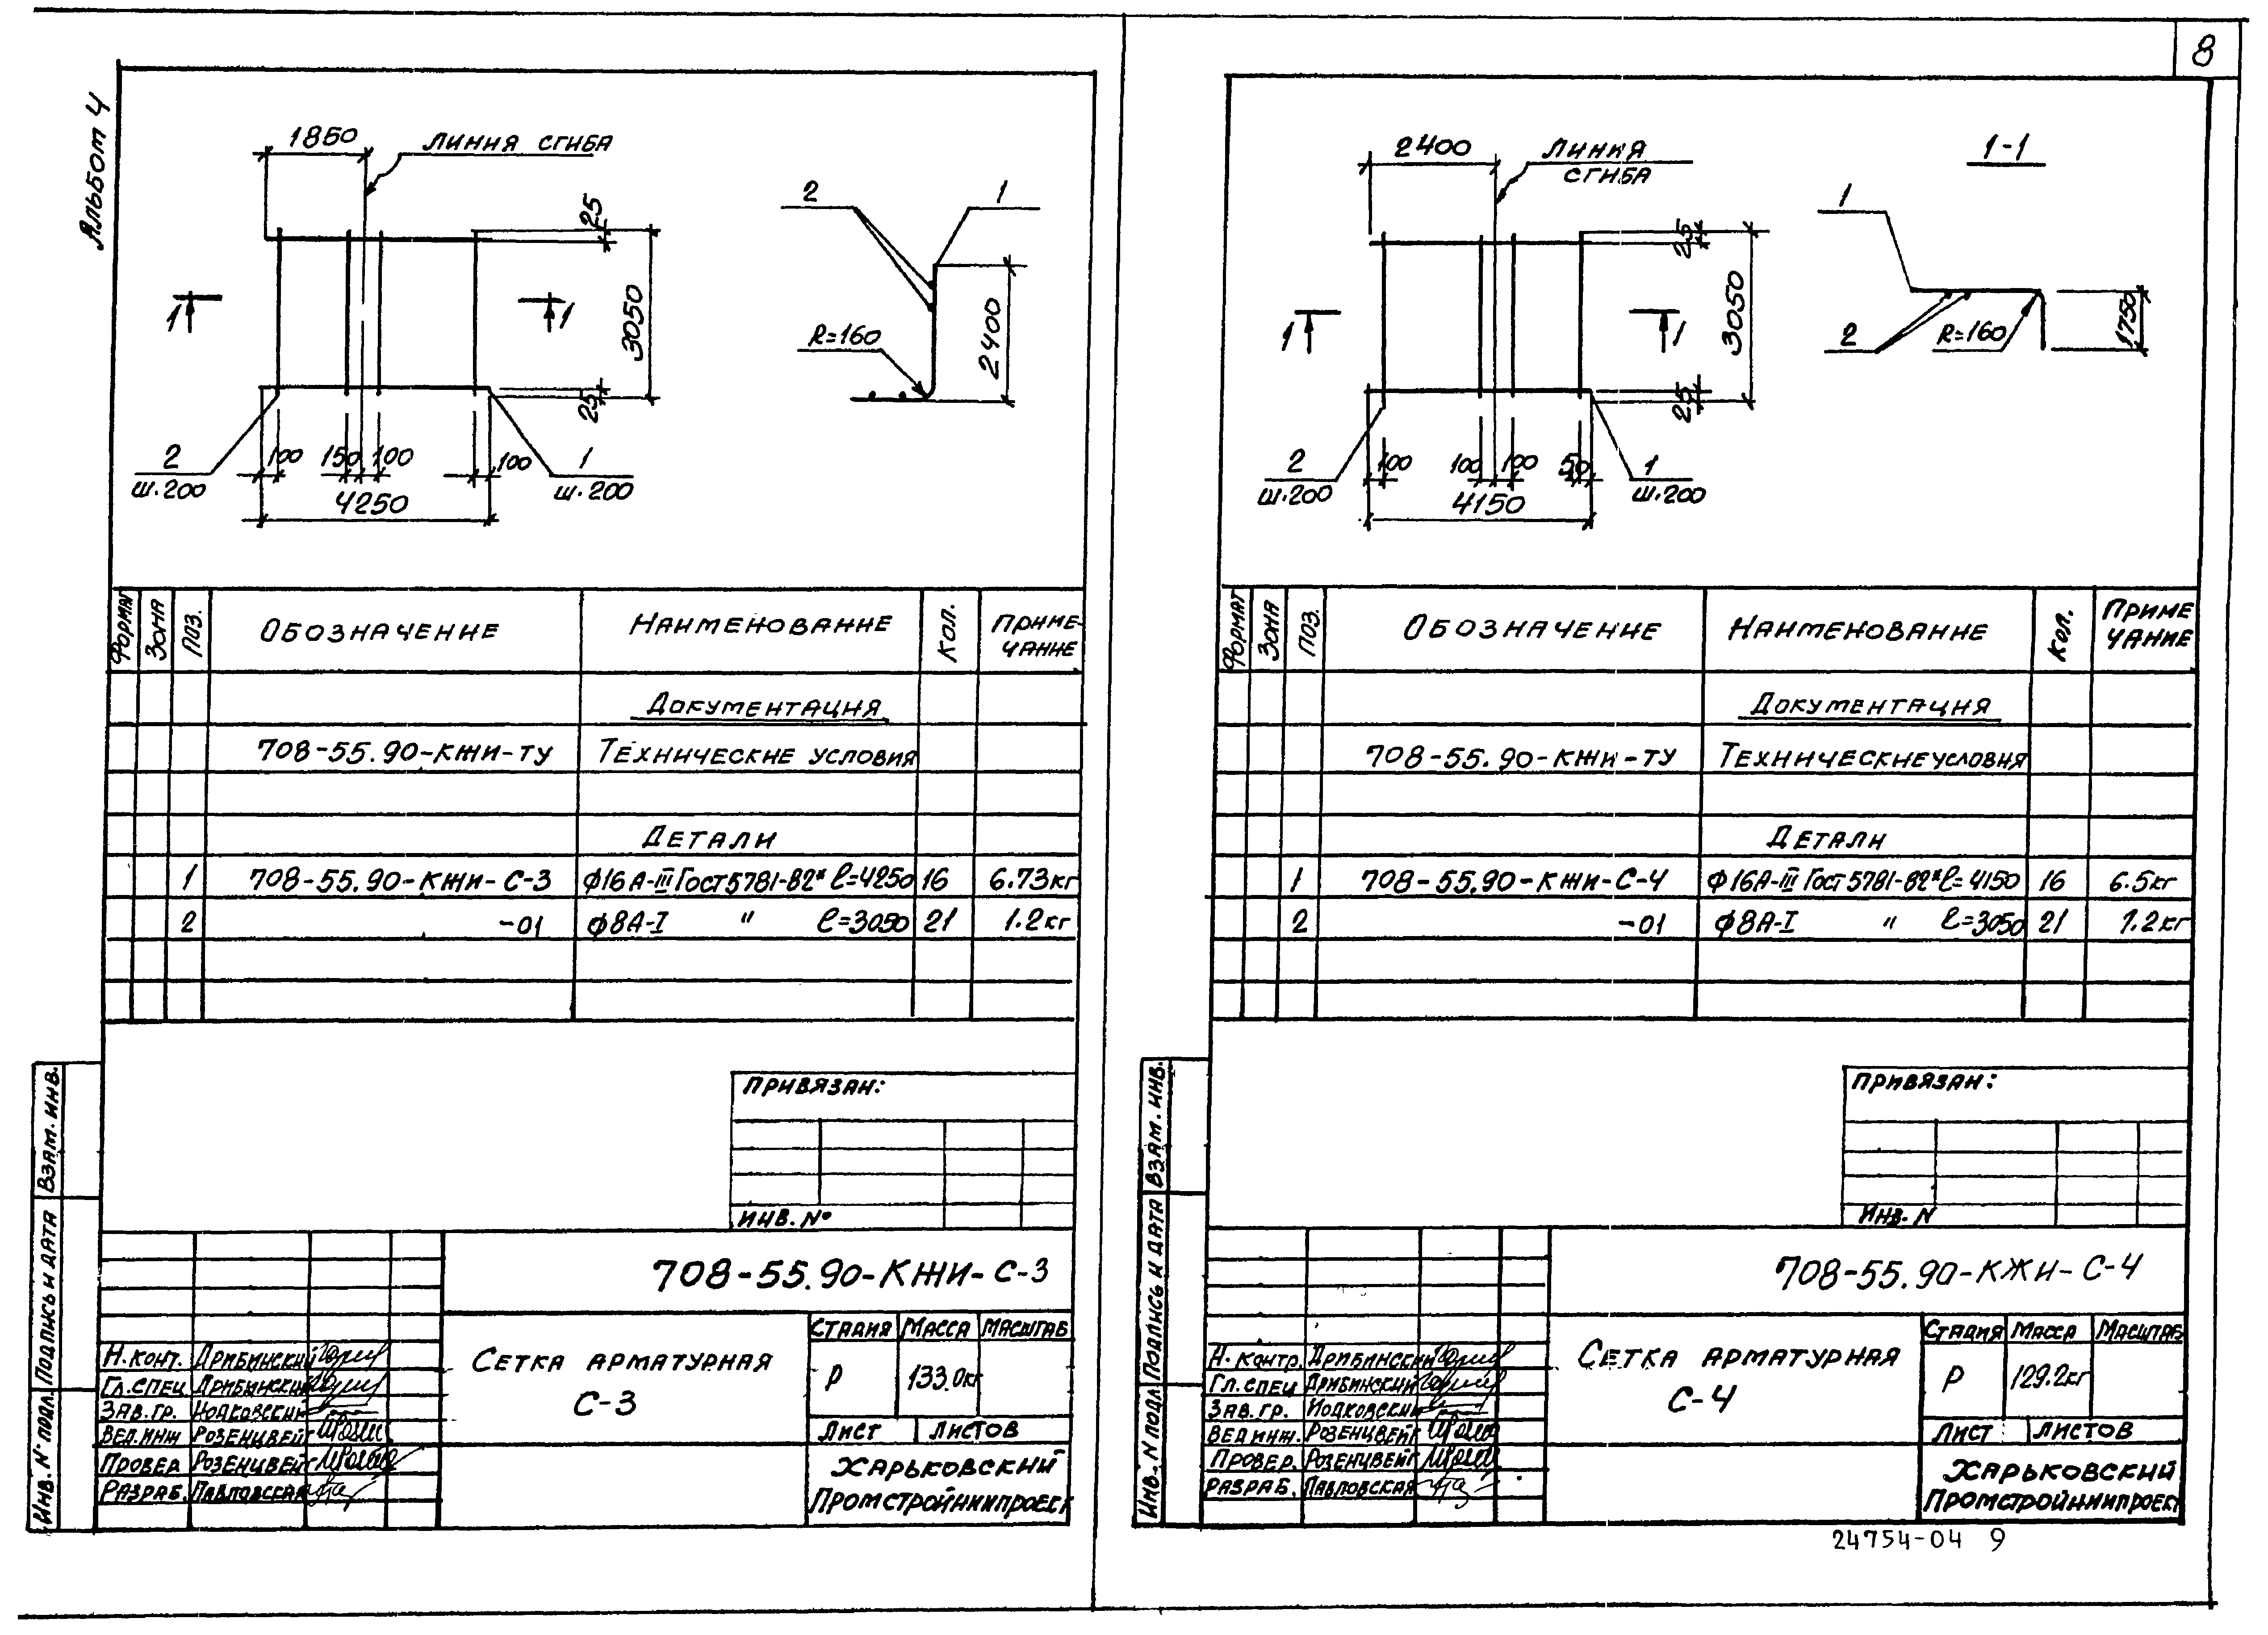 8
Альбом 4
1850
линия сгиба
25
3050
25
1
1
2
ш.200
100
150
100
100
1
ш.200
4250
2
1
R=160
2400
Формат
Зона
Поз.
Обозначение
Наименование
Кол.
Приме-
чание
Документация
708-55.90-КЖИ-ТУ
Технические условия
Детали
1
708-55.90-КЖИ-С-3
ф16А-III Гост5781-82* ℓ=4250
16
6.73кг
2
-01
ф8А-I " ℓ=3050
21
1.2кг
Привязан:
Инв. №
708-55.90-КЖИ-С-3
Сетка арматурная
С-3
Стадия
Масса
Масштаб
Р
133.0кг
Лист
Листов
Харьковский
Промстройниипроект
Н.конт. Дрибинский
Гл.спец Дрибинский
Зав.гр. Иодковский
Вед.инж Розенцвейг
Провер Розенцвейг
Разраб. Павловская
Взам. инв.
Подпись и дата
Инв. № подл.
2400
линия
сгиба
25
3050
25
1
1
2
ш.200
100
100
100
50
1
ш.200
4150
1-1
1
2
R=160
1750
Формат
Зона
Поз.
Обозначение
Наименование
Кол.
Приме
чание
Документация
708-55.90-КЖИ-ТУ
Технические условия
Детали
1
708-55.90-КЖИ-С-4
ф16А-III Гост5781-82* ℓ=4150
16
6.5кг
2
-01
ф8А-I " ℓ=3050
21
1.2кг
Привязан:
Инв. N
708-55.90-КЖИ-С-4
Сетка арматурная
С-4
Стадия
Масса
Масштаб
Р
129.2кг
Лист
Листов
Харьковский
Промстройниипроект
Н.контр. Дрибинский
Гл.спец Дрибинский
Зав.гр. Иодковский
Вед инж. Розенцвейг
Провер. Розенцвейг
Разраб. Павловская
Взам. инв.
Подпись и дата
Инв. N подл.
24754-04 9